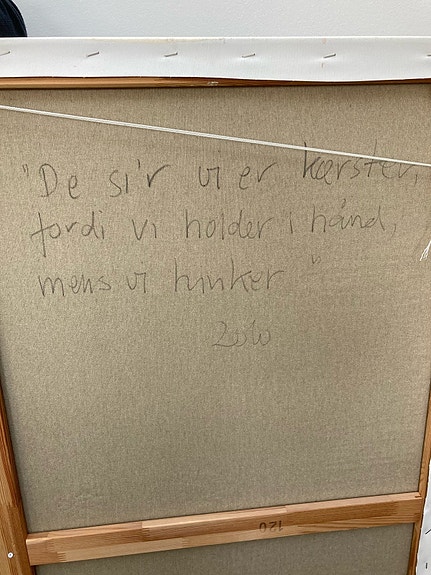 "De si'r vi er kærster,
fordi vi holder i hånd,
mens vi hinker"
120